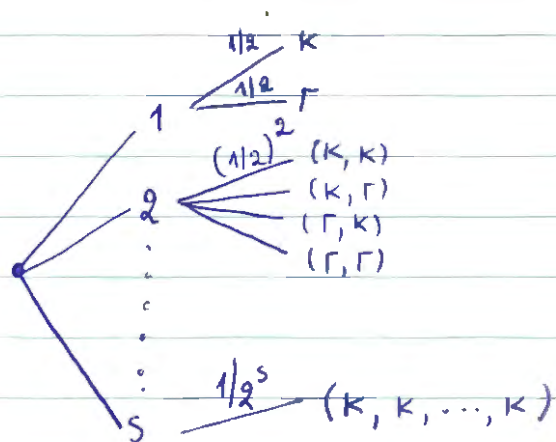 1/2 K
1/2 Γ
1
(1/2)² (K, K)
2 (K, Γ)
(Γ, K)
(Γ, Γ)
1/2ˢ (K, K, ..., K)
S